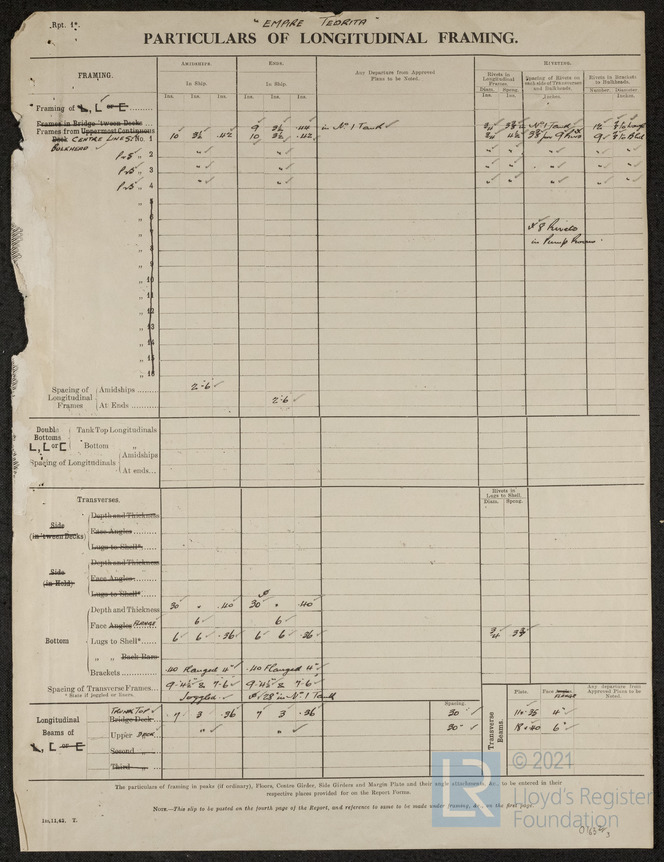 Rpt. 1*.
"EMPIRE TEDRITA"
PARTICULARS OF LONGITUDINAL FRAMING.
FRAMING.
Amidships.
Ends.
Any Departure from Approved Plans to be Noted.
Riveting.
In Ship.
In Ship.
Rivets in Longitudinal Frames.
Spacing of Rivets on each side of Transverses and Bulkheads.
Rivets in Brackets to Bulkheads.
Diam. Speng.
Number. Diameter.
Ins. Ins. Ins. Ins. Ins. Ins. Ins. Ins. Inches. Inches.
Framing of L, L or C
Frames in Bridge 'tween Decks 9 3½ .44 in No 1 Tank ¾ No 1 Tank 12
Frames from Uppermost Continuous
Deck CENTRE LINE No. 1 10 3½ .42 10 3½ .42 ¾ 9
BULKHEAD
P&S „ 2 „ „ „ „
P&S „ 3 „ „ „ „
P&S „ 4 „ „ „ „
„ 5
„ 6
„ 7
8 Rivets
„ 8 in Pump Rooms.
„ 9
„ 10
„ 11
„ 12
„ 13
„ 14
„ 15
„ 16
Spacing of Longitudinal Frames
Amidships 2-6
At Ends 2-6
Double Bottoms
L, L or C
Tank Top Longitudinals
Bottom „
Spacing of Longitudinals
Amidships
At ends...
Transverses.
Rivets in Lugs to Shell.
Diam. Speng.
Side (in 'tween Decks)
Depth and Thickness
Face Angles
Lugs to Shell*
Side (in Hold)
Depth and Thickness
Face Angles
Lugs to Shell*
Bottom
Depth and Thickness 30 „ .40 30 „ .40
Face Angles FLANGE 6 6
Lugs to Shell* 6 6 .36 6 6 .36 ¾
„ „ Back Bars
Brackets .40 Flanged 4" .40 Flanged 4"
Spacing of Transverse Frames 9-4½ & 7-6 9-4½ & 7-6
* State if joggled or liners. Joggled. in No 1 Tank
Longitudinal Beams of L, L or C
TRUNK TOP
Bridge Deck 7 3 .36 7 3 .36
Upper DECK „ „
Second „
Third „
Spacing.
30"
30"
Transverse Beams.
Plate. Face Angles FLANGE
Any departure from Approved Plans to be Noted.
4"
18 x .40 6"
The particulars of framing in peaks (if ordinary), Floors, Centre Girder, Side Girders and Margin Plate and their angle attachments, &c. to be entered in their
respective places provided for on the Report Forms.
Note.—This slip to be posted on the fourth page of the Report, and reference to same to be made under framing, &c., on the first page.
1m,11,43. T.
© 2021
Lloyd's Register
Foundation
LR